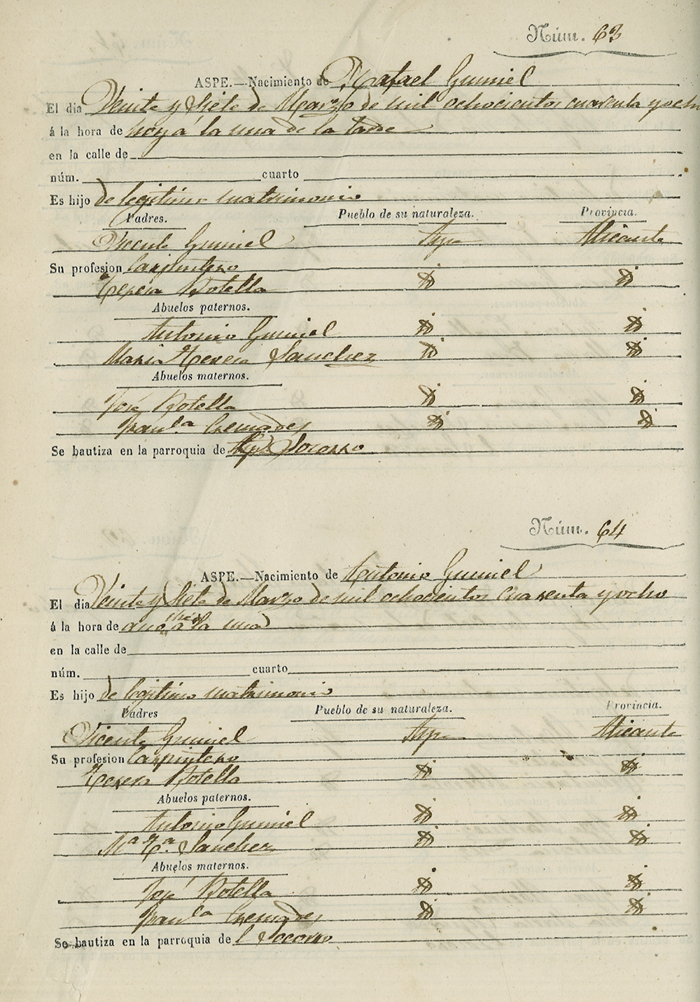 Núm. 63
ASPE.—Nacimiento de Rafael Gumiel
El dia Veinte y Siete de Marzo de mil ochocientos cuarenta y ocho
á la hora de hoy á la una de la tarde
en la calle de
núm. cuarto
Es hijo de legitimo matrimonio
Padres. Pueblo de su naturaleza. Provincia.
Vicente Gumiel Aspe Alicante
Su profesion Carpintero
Teresa Botella
Abuelos paternos.
Antonio Gumiel
Maria Teresa Sanchez
Abuelos maternos.
José Botella
Fran.ca Cremades
Se bautiza en la parroquia de Socorro
Núm. 64
ASPE.—Nacimiento de Antonio Gumiel
El dia Veinte y Siete de Marzo de mil ochocientos cuarenta y ocho
á la hora de á la una
en la calle de
núm. cuarto
Es hijo de legitimo matrimonio
Padres Pueblo de su naturaleza. Provincia.
Vicente Gumiel Aspe Alicante
Su profesion Carpintero
Teresa Botella
Abuelos paternos.
Antonio Gumiel
M.a T.a Sanchez
Abuelos maternos.
José Botella
Fran.ca Cremades
Se bautiza en la parroquia de l Socorro